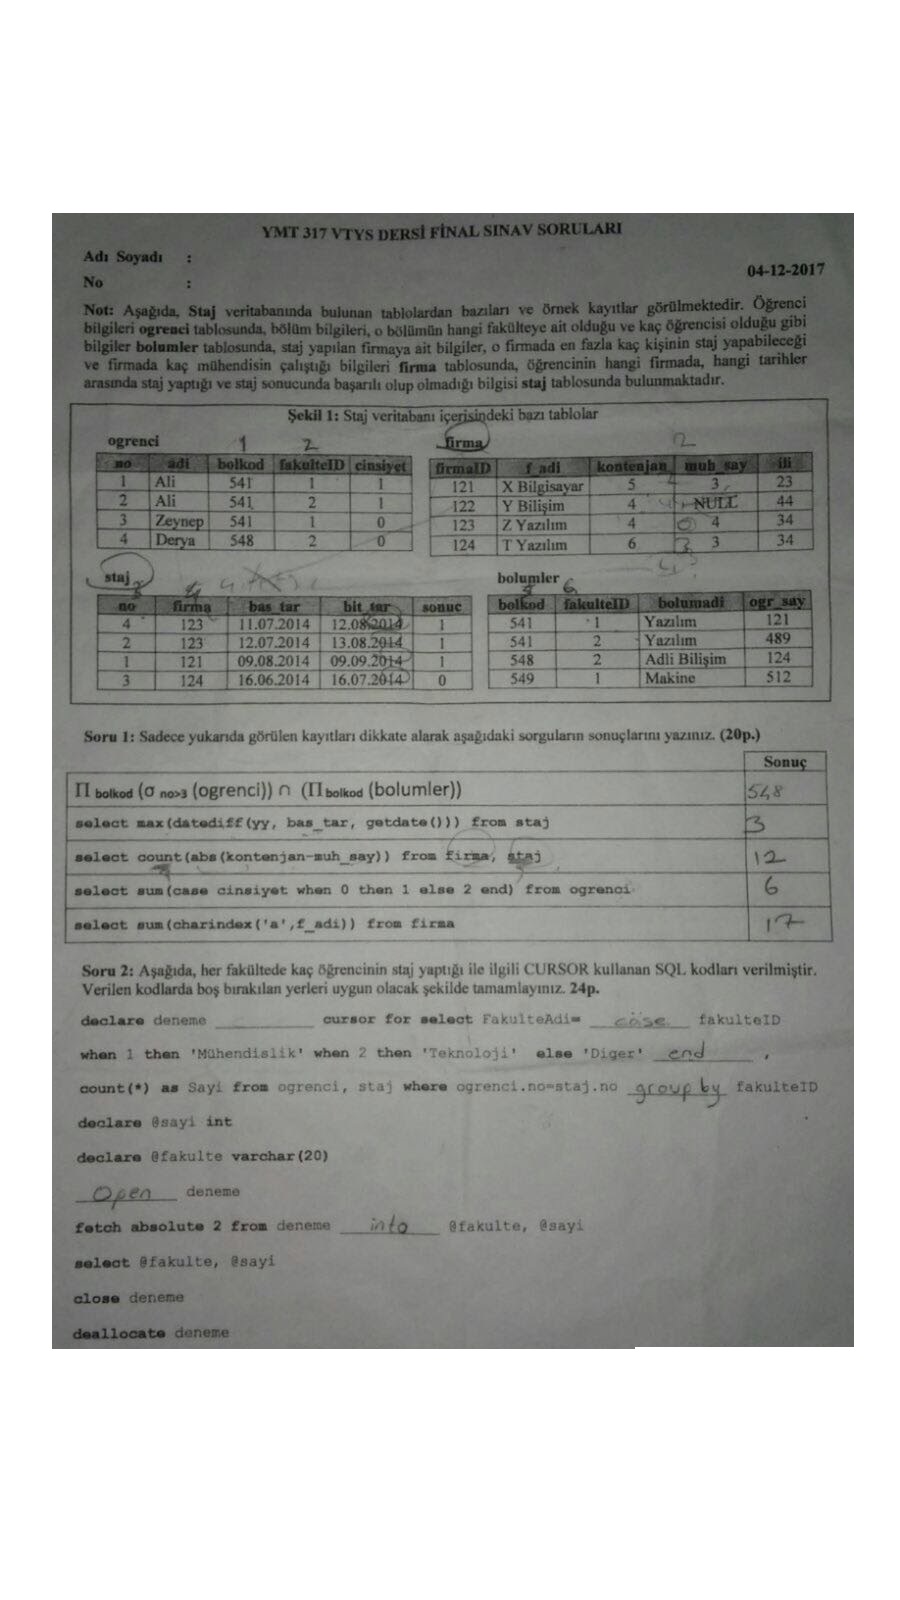 YMT 317 VTYS DERSİ FİNAL SINAV SORULARI
Adı Soyadı :
04-12-2017
No :
Not: Aşağıda, Staj veritabanında bulunan tablolardan bazıları ve örnek kayıtlar görülmektedir. Öğrenci
bilgileri ogrenci tablosunda, bölüm bilgileri, o bölümün hangi fakülteye ait olduğu ve kaç öğrencisi olduğu gibi
bilgiler bolumler tablosunda, staj yapılan firmaya ait bilgiler, o firmada en fazla kaç kişinin staj yapabileceği
ve firmada kaç mühendisin çalıştığı bilgileri firma tablosunda, öğrencinin hangi firmada, hangi tarihler
arasında staj yaptığı ve staj sonucunda başarılı olup olmadığı bilgisi staj tablosunda bulunmaktadır.
Şekil 1: Staj veritabanı içerisindeki bazı tablolar
ogrenci 1 2
no adi bolkod fakulteID cinsiyet
1 Ali 541 1 1
2 Ali 541 2 1
3 Zeynep 541 1 0
4 Derya 548 2 0
firma 2
firmaID f_adi kontenjan muh_say ili
121 X Bilgisayar 5 3 23
122 Y Bilişim 4 NULL 44
123 Z Yazılım 4 0 4 34
124 T Yazılım 6 3 3 34
staj
no firma bas_tar bit_tar sonuc
4 123 11.07.2014 12.08.2014 1
2 123 12.07.2014 13.08.2014 1
1 121 09.08.2014 09.09.2014 1
3 124 16.06.2014 16.07.2014 0
bolumler
bolkod fakulteID bolumadi ogr_say
541 1 Yazılım 121
541 2 Yazılım 489
548 2 Adli Bilişim 124
549 1 Makine 512
Soru 1: Sadece yukarıda görülen kayıtları dikkate alarak aşağıdaki sorguların sonuçlarını yazınız. (20p.)
Sonuç
Π bolkod (σ no>3 (ogrenci)) ∩ (Π bolkod (bolumler)) 548
select max(datediff(yy, bas_tar, getdate())) from staj 3
select count(abs(kontenjan-muh_say)) from firma, staj 12
select sum(case cinsiyet when 0 then 1 else 2 end) from ogrenci 6
select sum(charindex('a',f_adi)) from firma 17
Soru 2: Aşağıda, her fakültede kaç öğrencinin staj yaptığı ile ilgili CURSOR kullanan SQL kodları verilmiştir.
Verilen kodlarda boş bırakılan yerleri uygun olacak şekilde tamamlayınız. 24p.
declare deneme __________ cursor for select FakulteAdi= case fakulteID
when 1 then 'Mühendislik' when 2 then 'Teknoloji' else 'Diger' end ,
count(*) as Sayi from ogrenci, staj where ogrenci.no=staj.no group by fakulteID
declare @sayi int
declare @fakulte varchar(20)
Open deneme
fetch absolute 2 from deneme into @fakulte, @sayi
select @fakulte, @sayi
close deneme
deallocate deneme